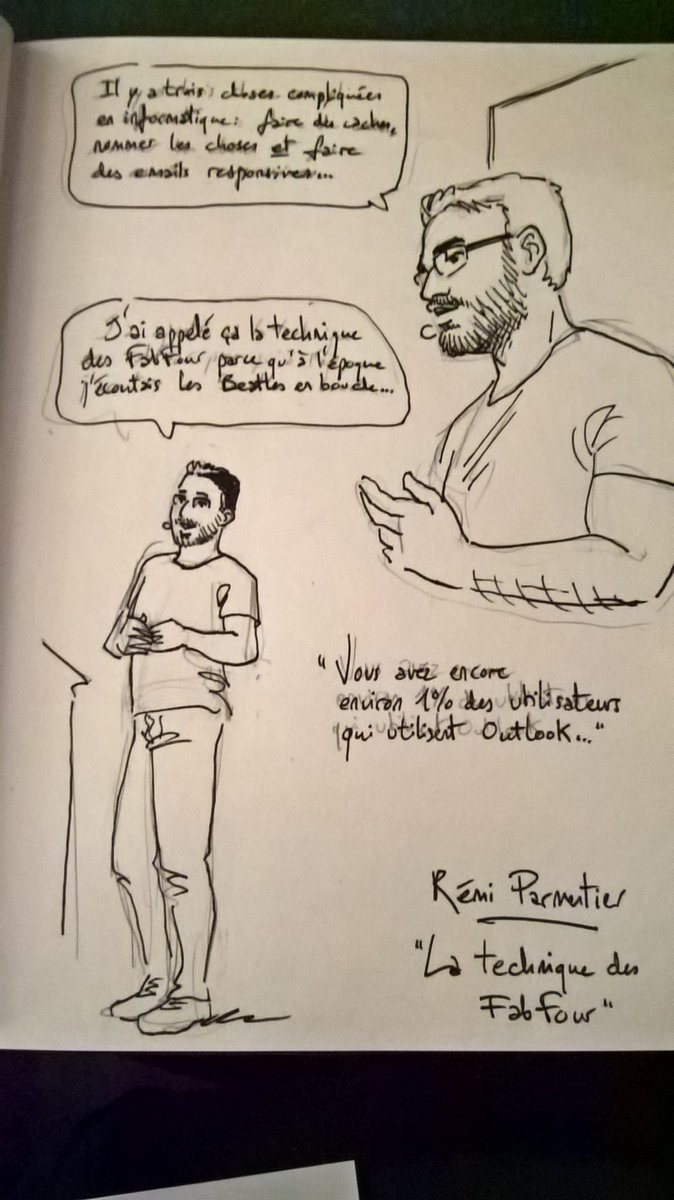 Il y a trois choses compliquées
en informatique: faire des caches,
nommer les choses et faire
des emails responsives...
J'ai appelé ça la technique
des FabFour, parce qu'à l'époque
j'écoutais les Beatles en boucle...
"Vous avez encore
environ 1% des utilisateurs
qui utilisent Outlook..."
Rémi Parmentier
"La technique des
FabFour"